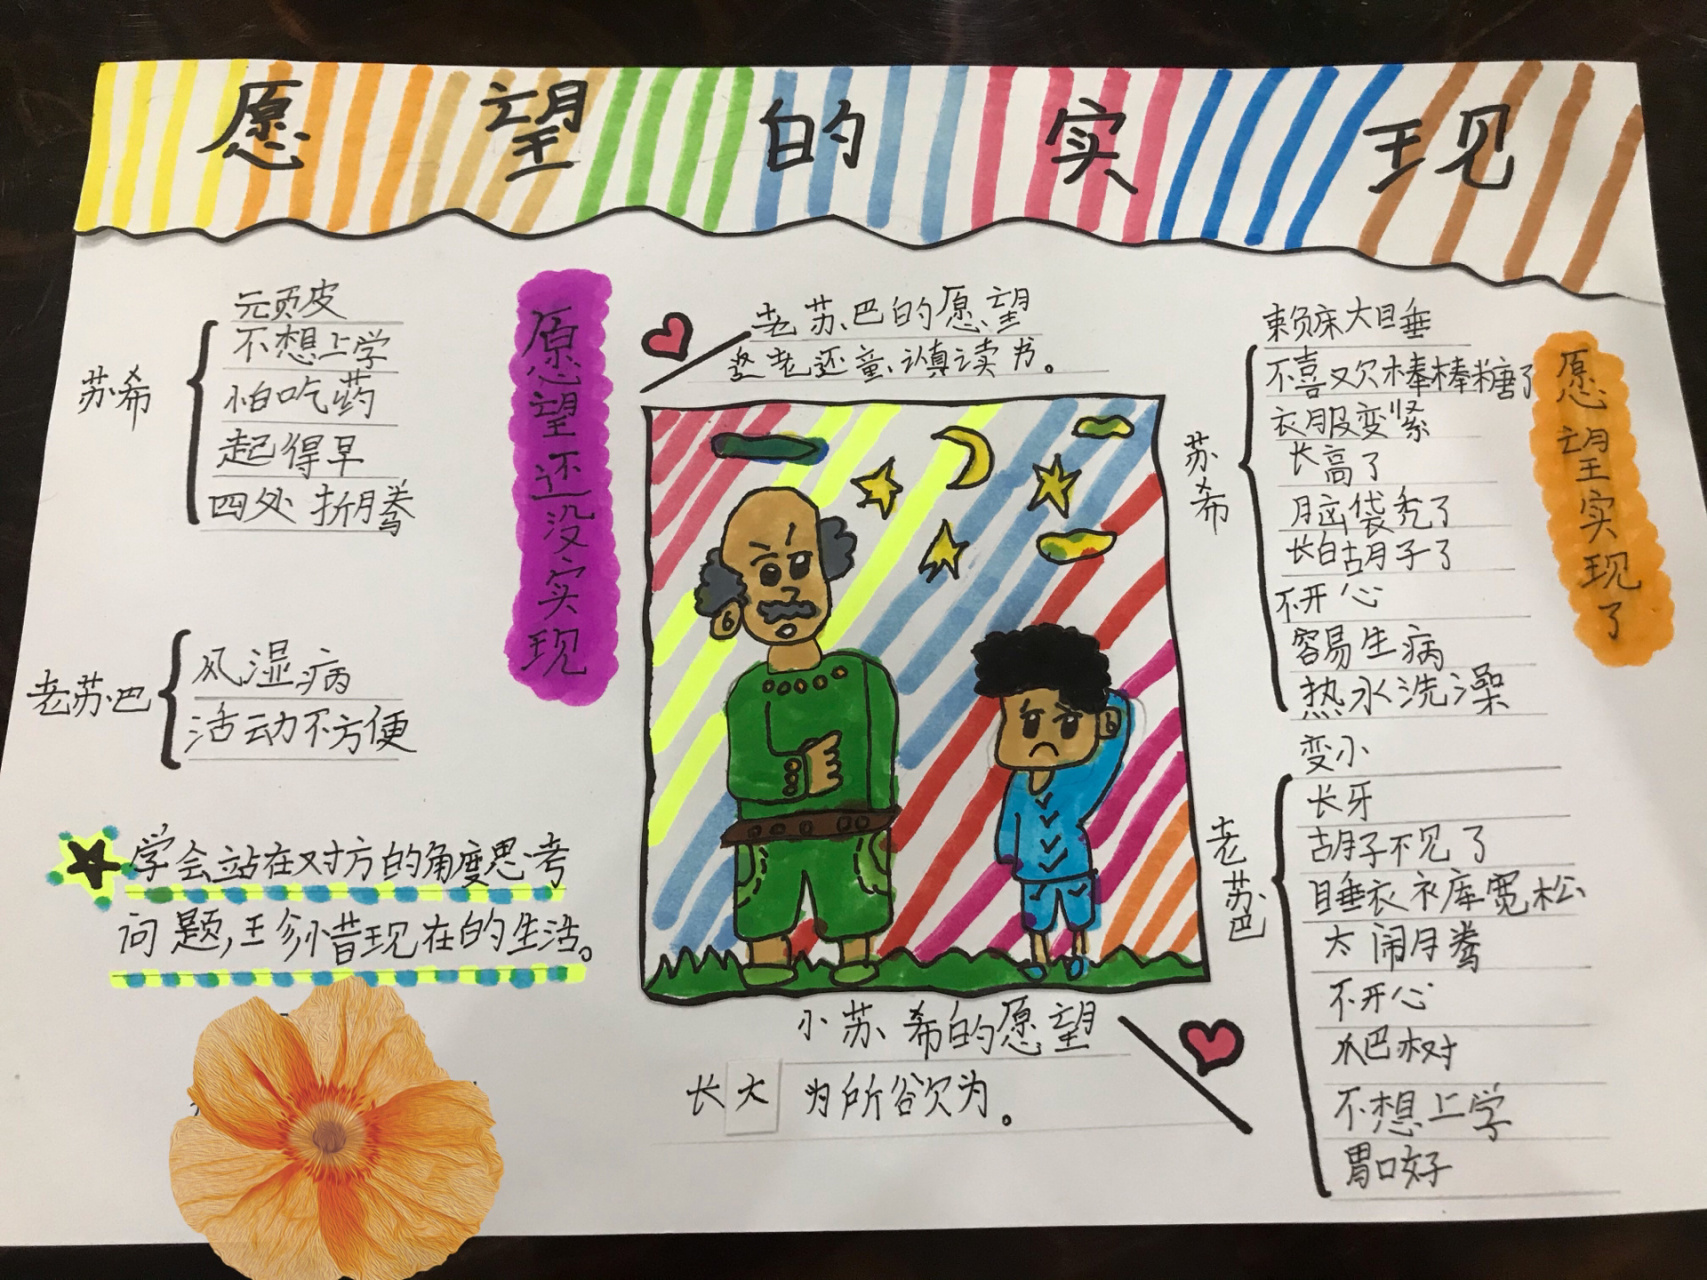 愿望的实现
愿望还没实现
苏希
元页皮
不想上学
怕吃药
起得早
四处折腾
老苏巴
风湿病
活动不方便
学会站在对方的角度思考
问题,珍惜现在的生活。
老苏巴的愿望
返老还童,认真读书。
小苏希的愿望
长大 为所欲为。
愿望实现了
苏希
赖床大睡
不喜欢棒棒糖了
衣服变紧
长高了
脑袋秃了
长白胡子了
不开心
容易生病
热水洗澡
老苏巴
变小
长牙
胡子不见了
睡衣裤宽松
太闹腾
不开心
爬树
不想上学
胃口好